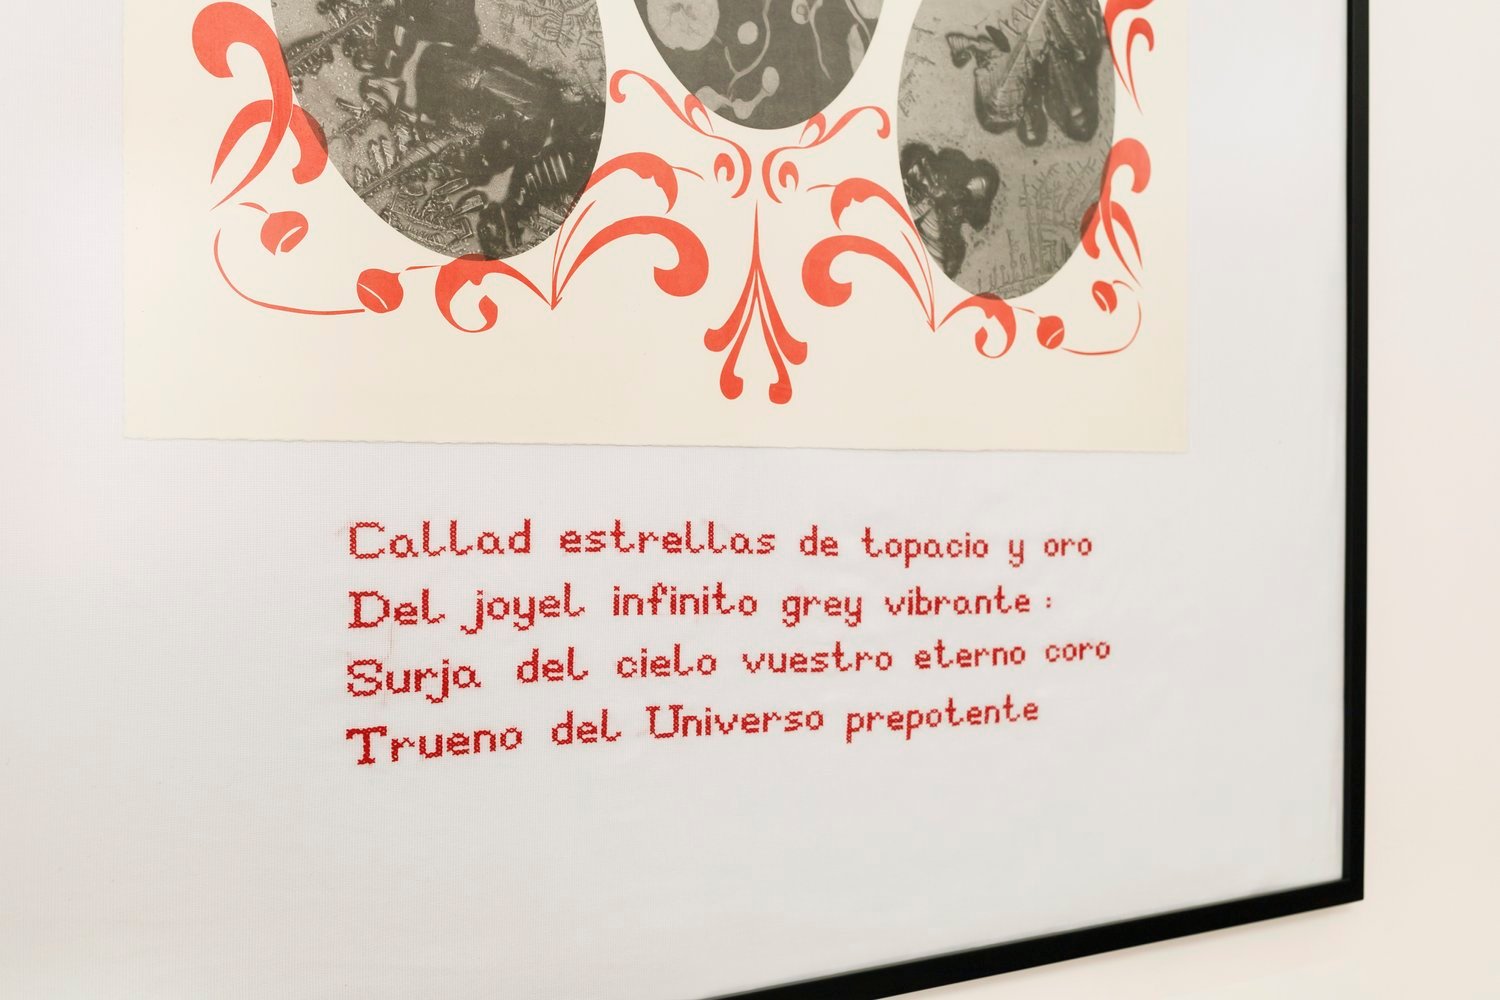 Callad estrellas de topacio y oro
Del joyel infinito grey vibrante :
Surja del cielo vuestro eterno coro
Trueno del Universo prepotente